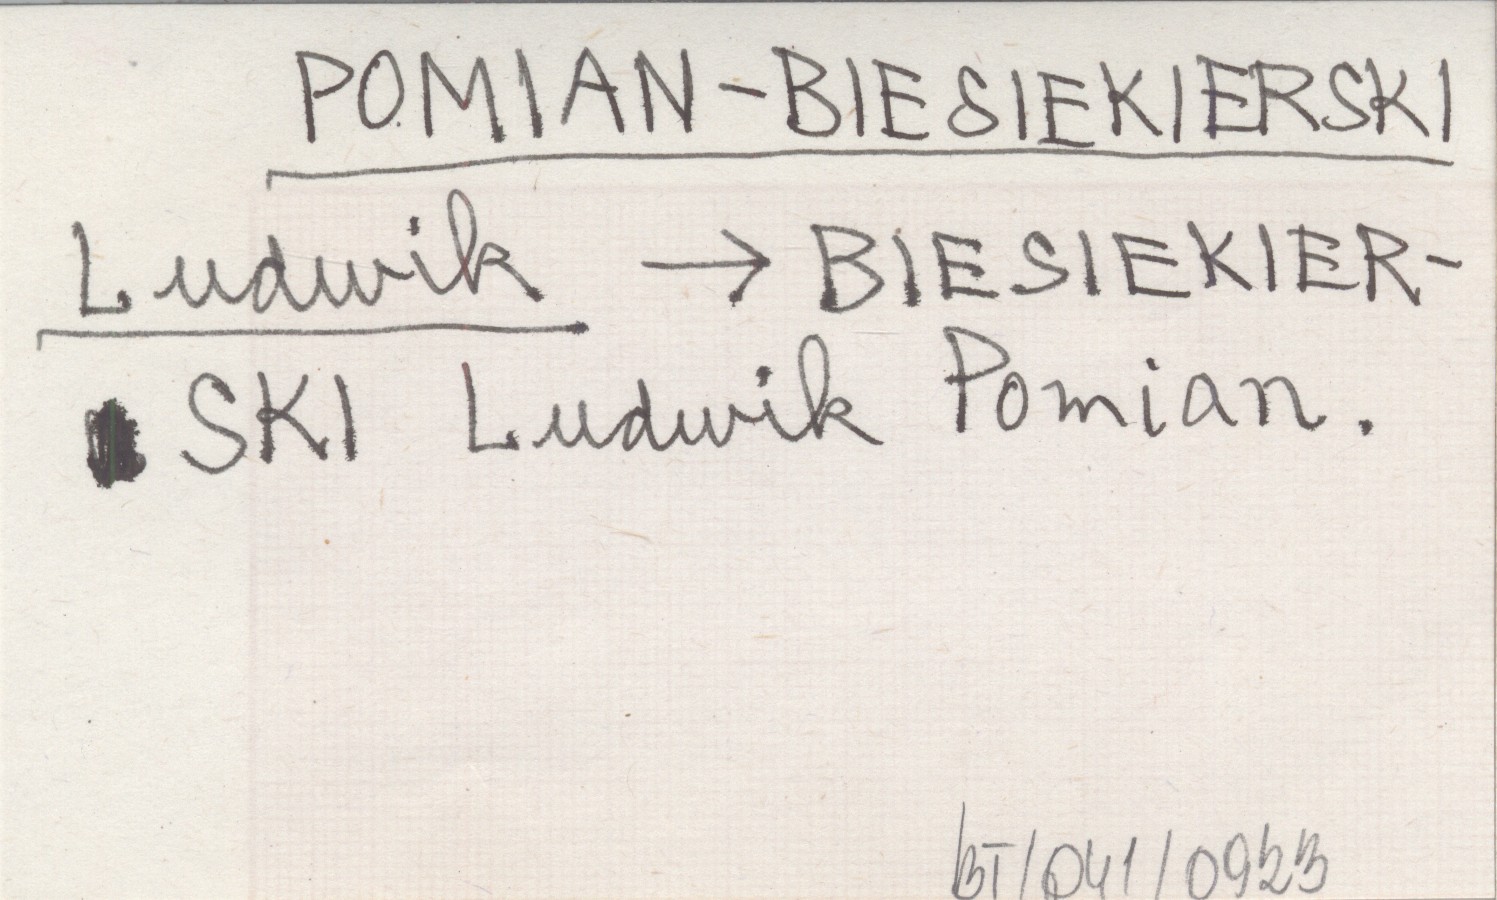 POMIAN-BIESIEKIERSKI
Ludwik → BIESIEKIER-
SKI Ludwik Pomian.
BT/041/0923